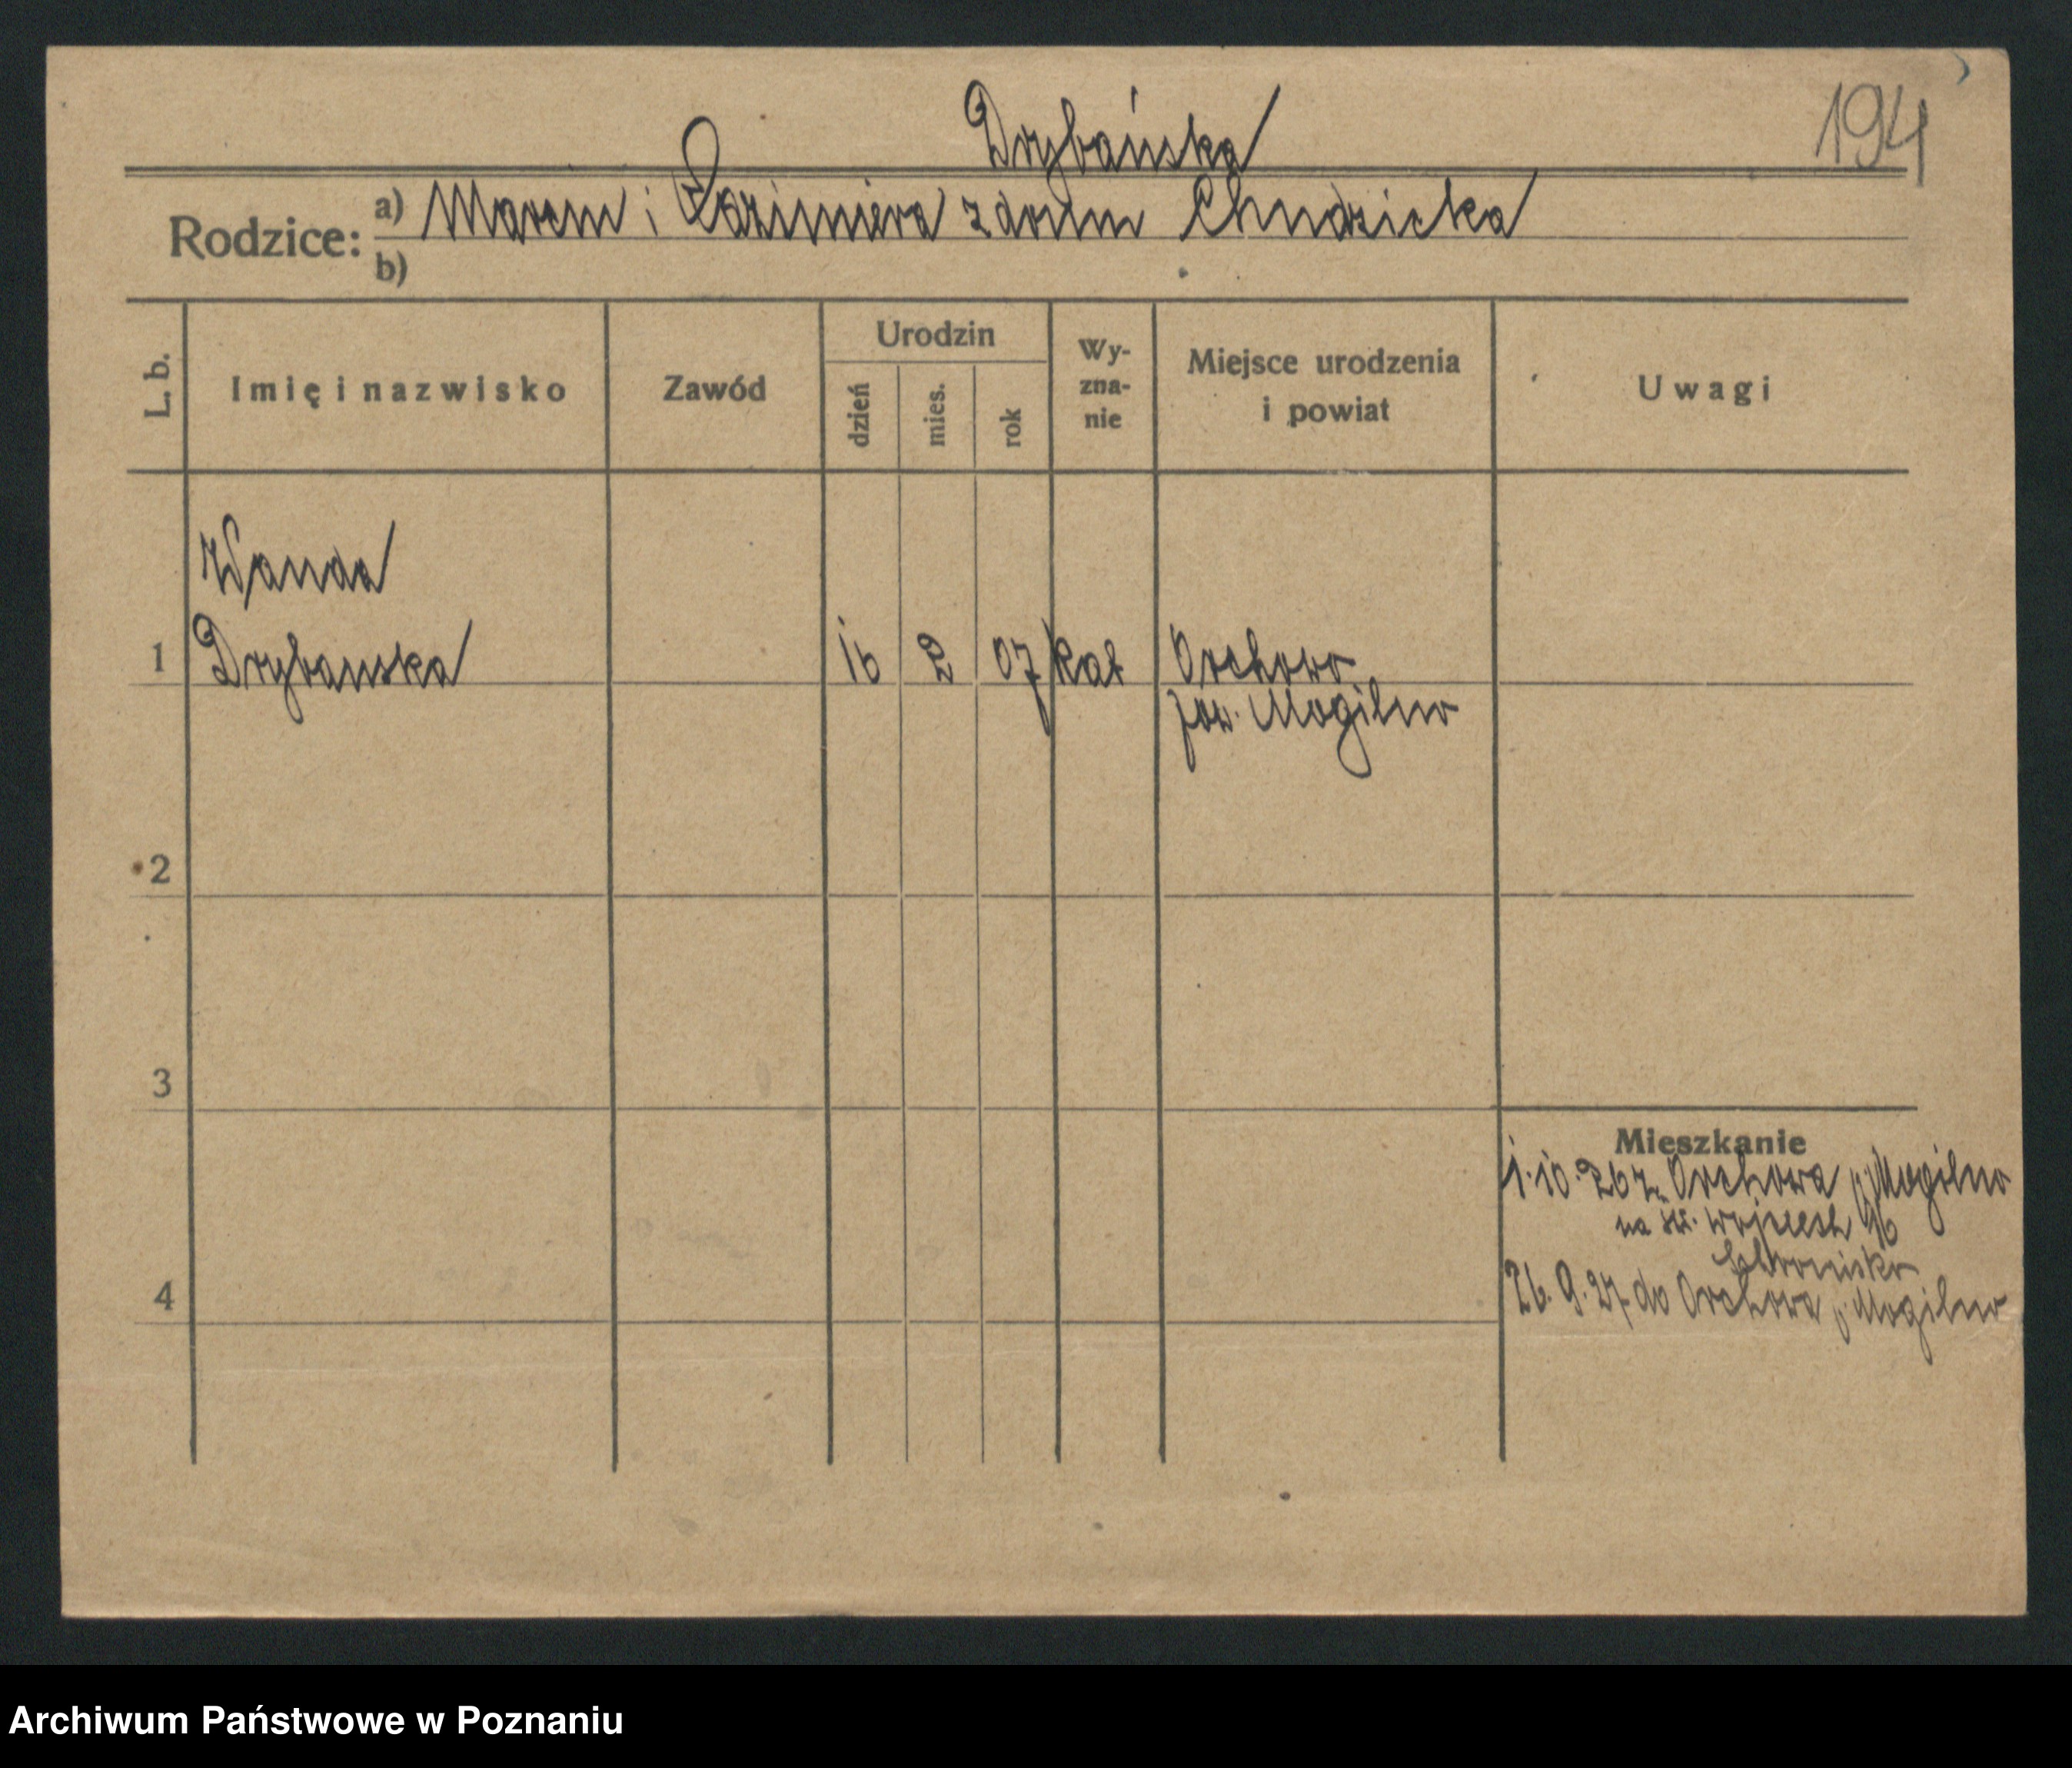 194
Drybańska
Rodzice: a) Marcin i Kazimiera z domu Chudzicka
b)
L. b.
Imię i nazwisko
Zawód
Urodzin
dzień
mies.
rok
Wy-
zna-
nie
Miejsce urodzenia
i powiat
Uwagi
Wanda
1 Drybanska 16 2 07 kat Orchowo
pow. Mogilno
2
3
Mieszkanie
1.10.26 z Orchowa p. Mogilno
na św. Wojciech
Schronisko
4
26.9.27 do Orchowa p. Mogilno
Archiwum Państwowe w Poznaniu